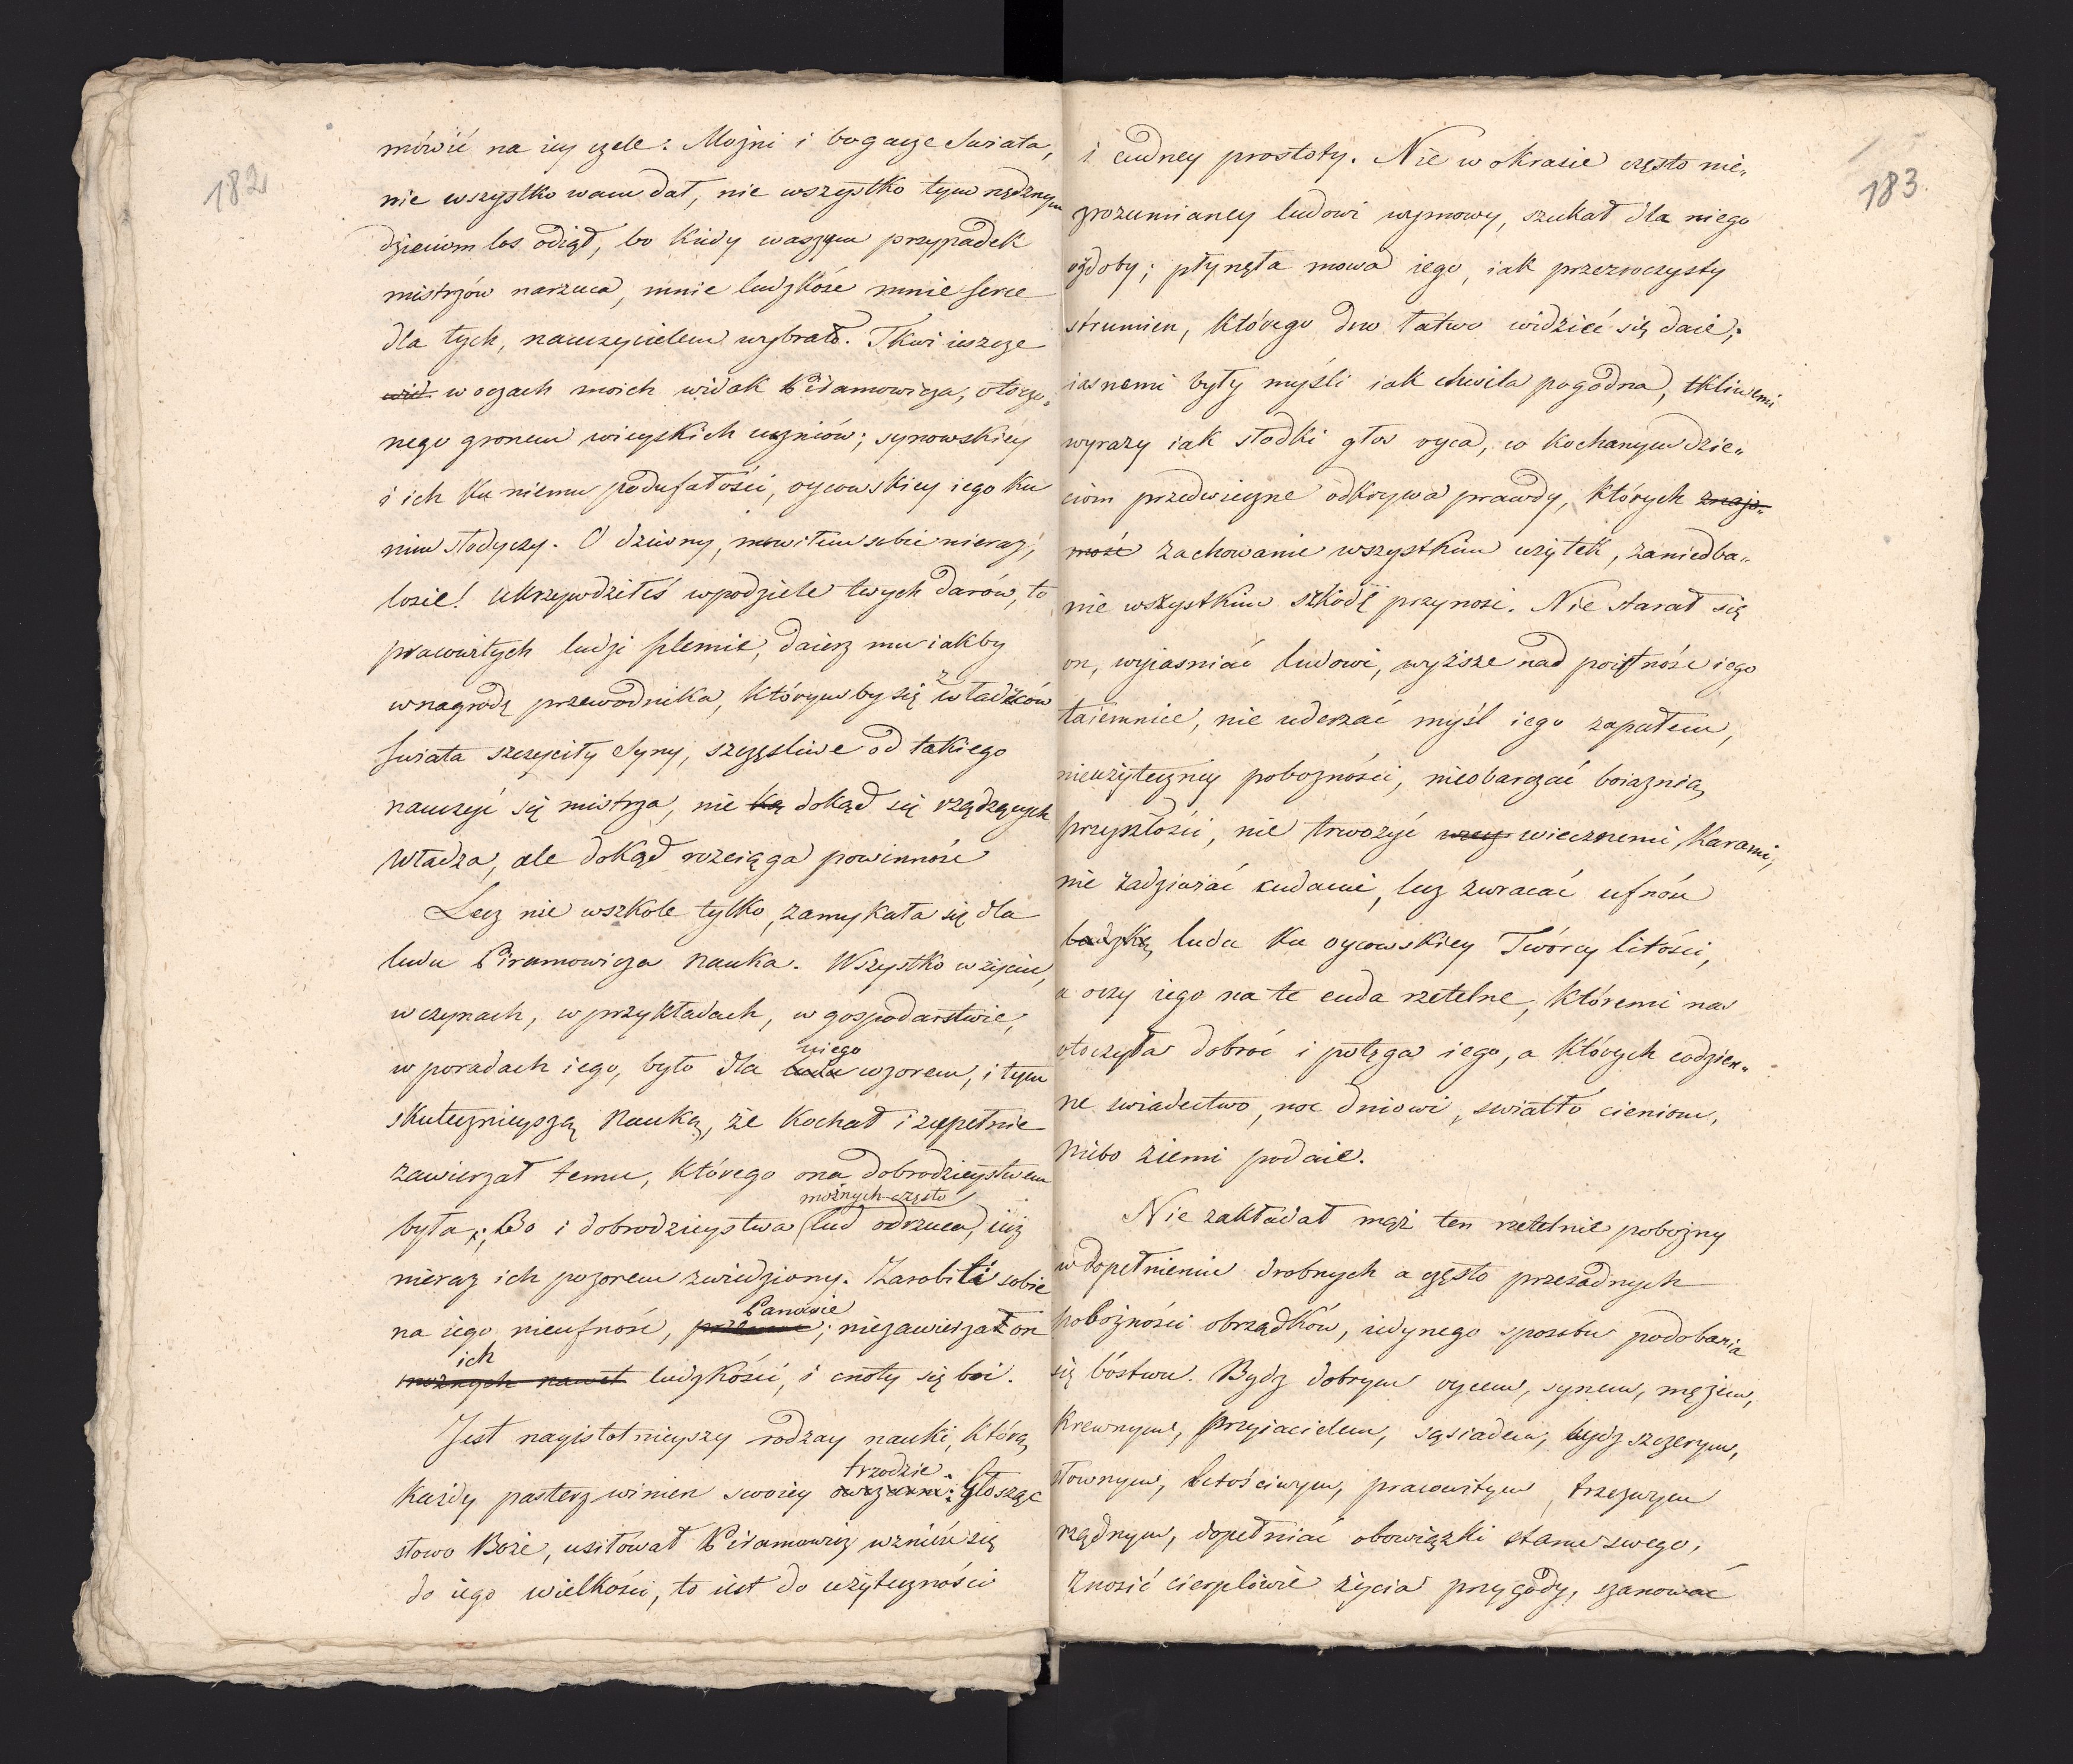 182
mówić na iey czele: Możni i bogacze swiata,
nie wszystko wam dał, nie wszystko tym nędznym
dzieciom los odiął, bo kiedy waszym przypadek
mistrzów narzuca, mnie ludzkość mnie serce
dla tych, nauczycielem wybrało. Tkwi ieszcze
wid w oczach moich widok Piramowicza, otoczo„
nego gronem wieyskich uczniów; synowskiéy
i ich ku niemu poufałości, oycowskiey iego ku
nim słodyczy. O dziwny, mowiłem sobie nieraz,
losie! ukrzywdziłeś w podziele twych darów, to
pracowitych ludzi plemie, daiesz mu iakby
w nagrodę przewodnika, którym by się z władzców
swiata szczyciły syny, szczęsliwe od takiego
nauczyć się mistrza, nie ką dokąd się rządzących
władza, ale dokąd rozciąga powinność
Lecz nie w szkole tylko, zamykała się dla
ludu Piramowicza nauka. Wszystko w życiu,
w czynach, w przykładach, w gospodarstwie,
niego
w poradach iego, było dla ludu wzorem, i tym
skutecznieyszą nauką, że kochał i zupełnie
zawierzał temu, którego ona dobrodzieystwem
możnych często
była; Bo i dobrodzieystwa lud odrzuca, iuż
nieraz ich pozorem zwiedziony. Zarobili sobie
Panowie
na iego nieufność, ; niezawierzał on
ich
możnych nawet ludzkości, i cnoty się boi.
Jest nayistotnieyszy rodzay nauki, którą
trzodzie.
każdy pasterz winien swoiey owczarni: Głosząc
słowo Boże, usiłował Piramowicz wznieść się
do iego wielkości, to iest do użyteczności
183.
i cudney prostoty. Nie w okrasie często nie„
zrozumianey ludowi wymowy, szukał dla niego
ozdoby; płynęła mowa iego, iak przezroczysty
strumien, którego dno łatwo widzieć się daie;
iasnemi były myśli iak chwila pogodna, tkliwemi
wyrazy iak słodki głos oyca, co kochanym dzie„
ciom przedwieczne odkrywa prawdy, których znajo„
mość zachowanie wszystkim użytek, zaniedba„
nie wszystkim szkodę przynosi. Nie starał się
on, wyiasniać ludowi, wyższe nad poiętność iego
taiemnice, nie uderzać myśl iego zapałem,
nieużyteczney pobożności, nieobarczać boiaznią
przyszłości, nie trwożyć wiecznemi karami,
nie zadziwiać cudami, lecz zwracać ufność
ludzką ludu ku oycowskiey Twórcy litości,
a oczy iego na te cuda rzetelne, któremi nas
otoczyła dobroć i potęga iego, a których codzien„
ne swiadectwo, noc dniowi, swiatło cieniom,
niebo ziemi podaie.
Nie zakładał mąż ten rzetelnie pobożny
w dopełnieniu drobnych a często przesadnych
pobożności obrządków, iedynego sposobu podobania
się bóstwu. Bydz dobrym oycem, synem, mężem,
krewnym, przyiacielem, sąsiadem, bydz szczerym,
słownym, litościwym, pracowitym, trzezwym
rządnym, dopełniać obowiązki stanu swego,
znosić cierpliwie życia przygody, szanować